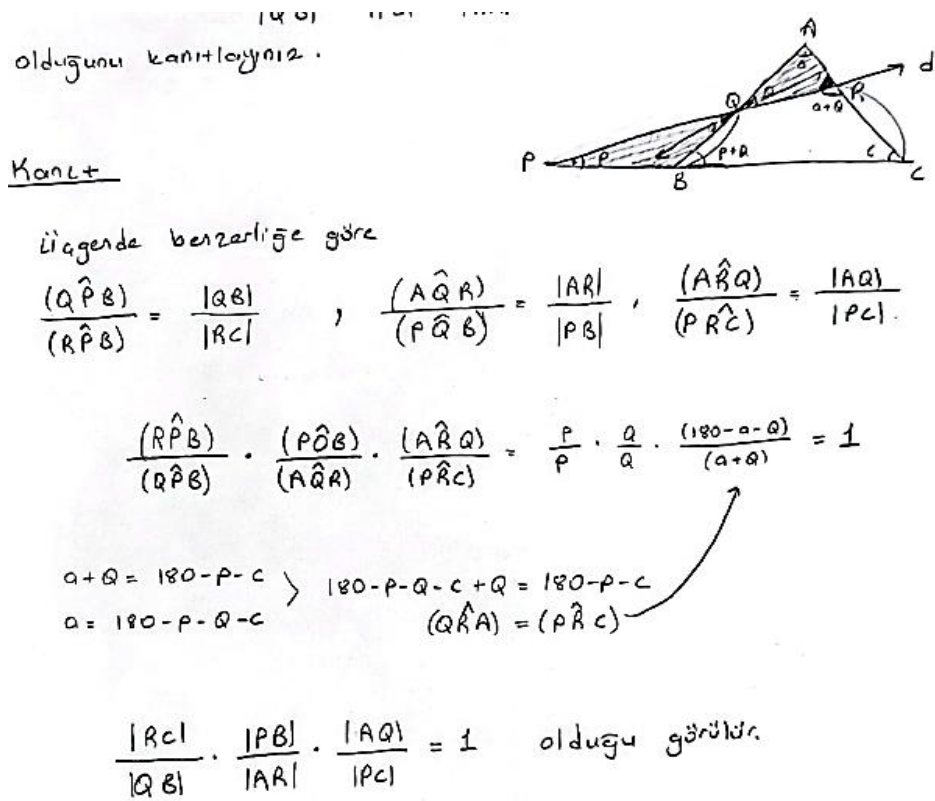 olduğunu kanıtlayınız.
A
d
Q
a
Q
R
a+Q
P
P
P+Q
c
B
C
Kanıt
Üçgende benzerliğe göre
(QP̂B)/(RP̂B) = |QB|/|RC| , (AQ̂R)/(PQ̂B) = |AR|/|PB| , (AR̂Q)/(PR̂C) = |AQ|/|PC| .
(RP̂B)/(QP̂B) · (PQ̂B)/(AQ̂R) · (AR̂Q)/(PR̂C) = P/P · Q/Q · (180-a-Q)/(a+Q) = 1
a+Q = 180-P-C > 180-P-Q-C+Q = 180-P-C
a = 180-P-Q-C (QR̂A) = (PR̂C)
|RC|/|QB| · |PB|/|AR| · |AQ|/|PC| = 1 olduğu görülür.